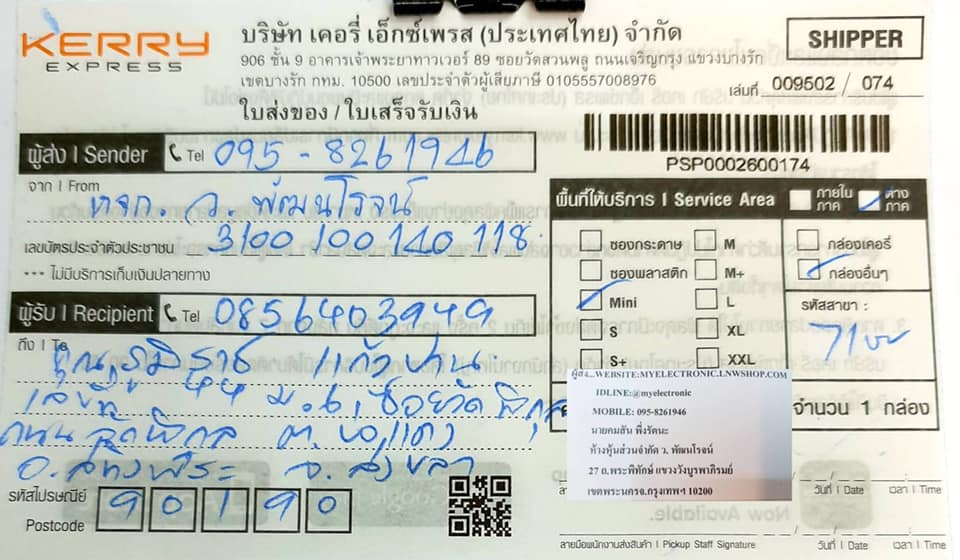 KERRY
EXPRESS
บริษัท เคอรี่ เอ็กซ์เพรส (ประเทศไทย) จำกัด
906 ชั้น 9 อาคารเจ้าพระยาทาวเวอร์ 89 ซอยวัดสวนพลู ถนนเจริญกรุง แขวงบางรัก
เขตบางรัก กทม. 10500 เลขประจำตัวผู้เสียภาษี 0105557008976
SHIPPER
เล่มที่ 009502 / 074
ใบส่งของ / ใบเสร็จรับเงิน
PSP0002600174
ผู้ส่ง | Sender Tel 095-8261946
จาก | From
หจก. ว. พัฒนโรจน์
เลขบัตรประจำตัวประชาชน 3100 100 140 118
--- ไม่มีบริการเก็บเงินปลายทาง
ผู้รับ | Recipient Tel 0856403949
ถึง | To
คุณ
เลขที่ 44 ม.6 ซอยวัด
ถนน ต.
อ.สทิงพระ จ.สงขลา
รหัสไปรษณีย์
Postcode
90190
พื้นที่ให้บริการ | Service Area ภายในภาค ต่างภาค
ซองกระดาษ M กล่องเคอรี่
ซองพลาสติก M+ กล่องอื่นๆ
Mini L รหัสสาขา :
S XL
S+ XXL
จำนวน 1 กล่อง
ผู้ส่ง...WEBSITE:MYELECTRONIC.LNWSHOP.COM
IDLINE:@myelectronic
MOBILE: 095-8261946
นายคมสัน พึ่งรัตนะ
ห้างหุ้นส่วนจำกัด ว. พัฒนโรจน์
27 ถ.พระพิทักษ์ แขวงวังบูรพาภิรมย์
เขตพระนครจ.กรุงเทพฯ 10200
วันที่ | Date เวลา | Time
ลายมือพนักงานส่งสินค้า | Pickup Staff Signature วันที่ | Date เวลา | Time